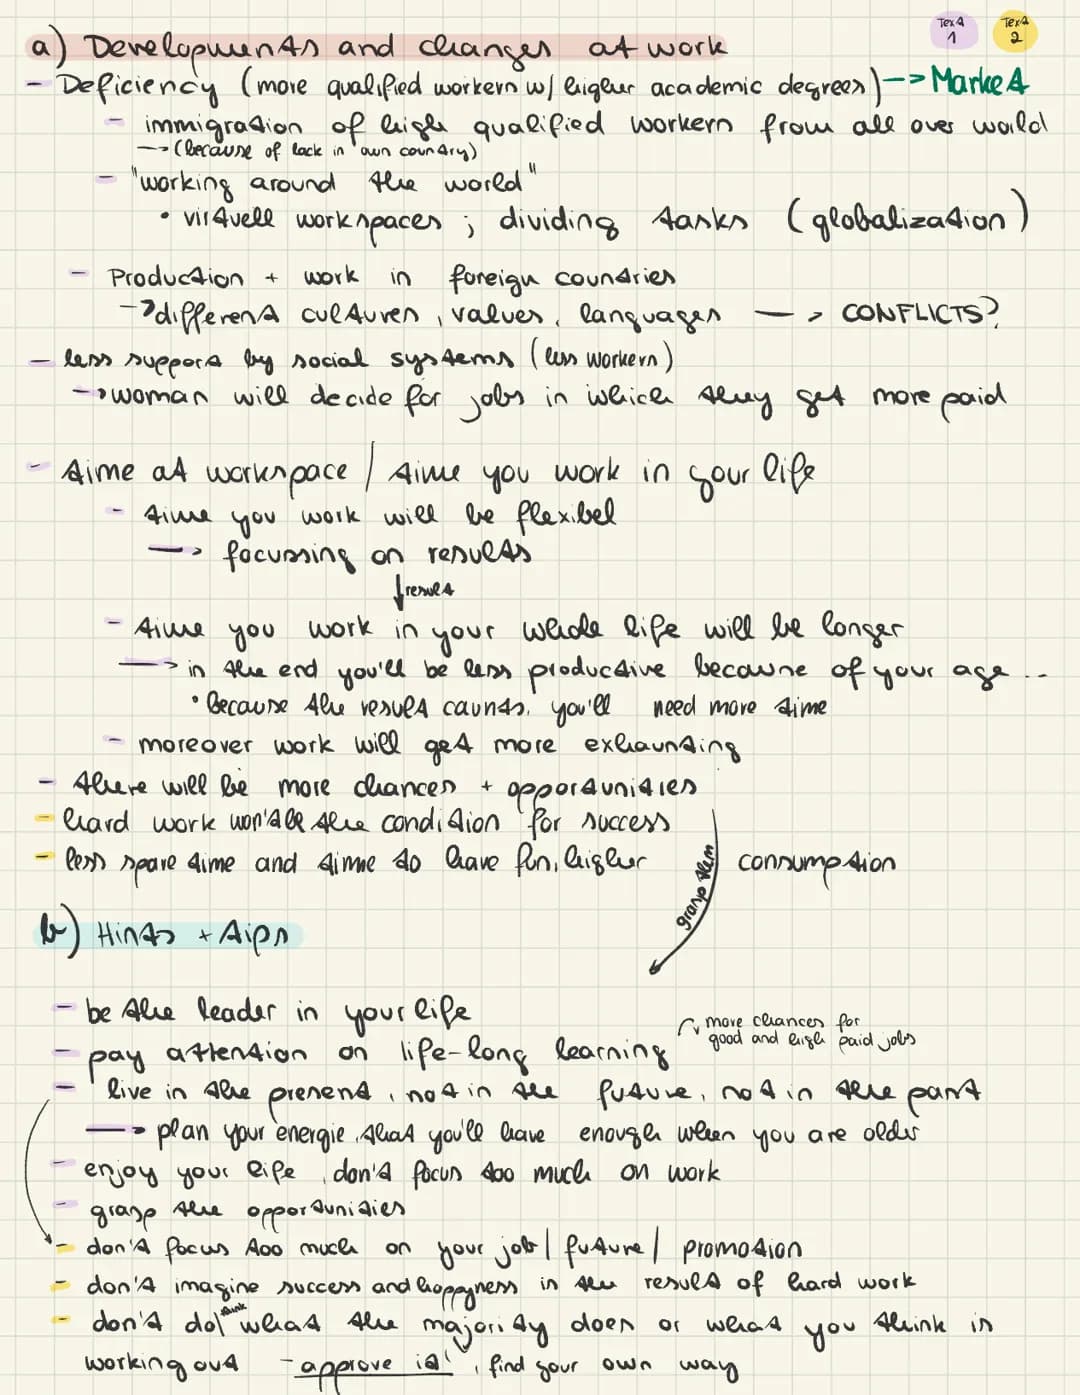 Text 1
Text 2
a) Developments and changes at work
- Deficiency (more qualified workers w/ higher academic degrees) --> Market
- immigration of high qualified workers from all over world
--> (because of lack in own country)
- "working around the world"
• virtuell workspaces ; dividing tasks (globalization)
- Production + work in foreign countries
-> different cultures, values, languages —> CONFLICTS?
- less support by social systems (less workers)
-> woman will decide for jobs in which they get more paid
- time at workspace / time you work in your life
- time you work will be flexibel
—> focussing on results
↓ result
- time you work in your whole life will be longer
—> in the end you'll be less productive because of your age ..
• because the result counts, you'll need more time
- moreover work will get more exhausting
- there will be more chances + opportunities
- hard work won't be the condition for success
- less spare time and time to have fun, higher consumption
grasp them
b) Hints + tips
- be the leader in your life
- pay attention on life-long learning
more chances for
good and high paid jobs
- live in the present, not in the future, not in the past
—> plan your energie, that you'll have enough when you are older
- enjoy your life, don't focus too much on work
- grasp the opportunities
- don't focus too much on your job / future / promotion
- don't imagine success and happyness in the result of hard work
- don't do/think what the majority does or what you think is
working out - approve it!, find your own way